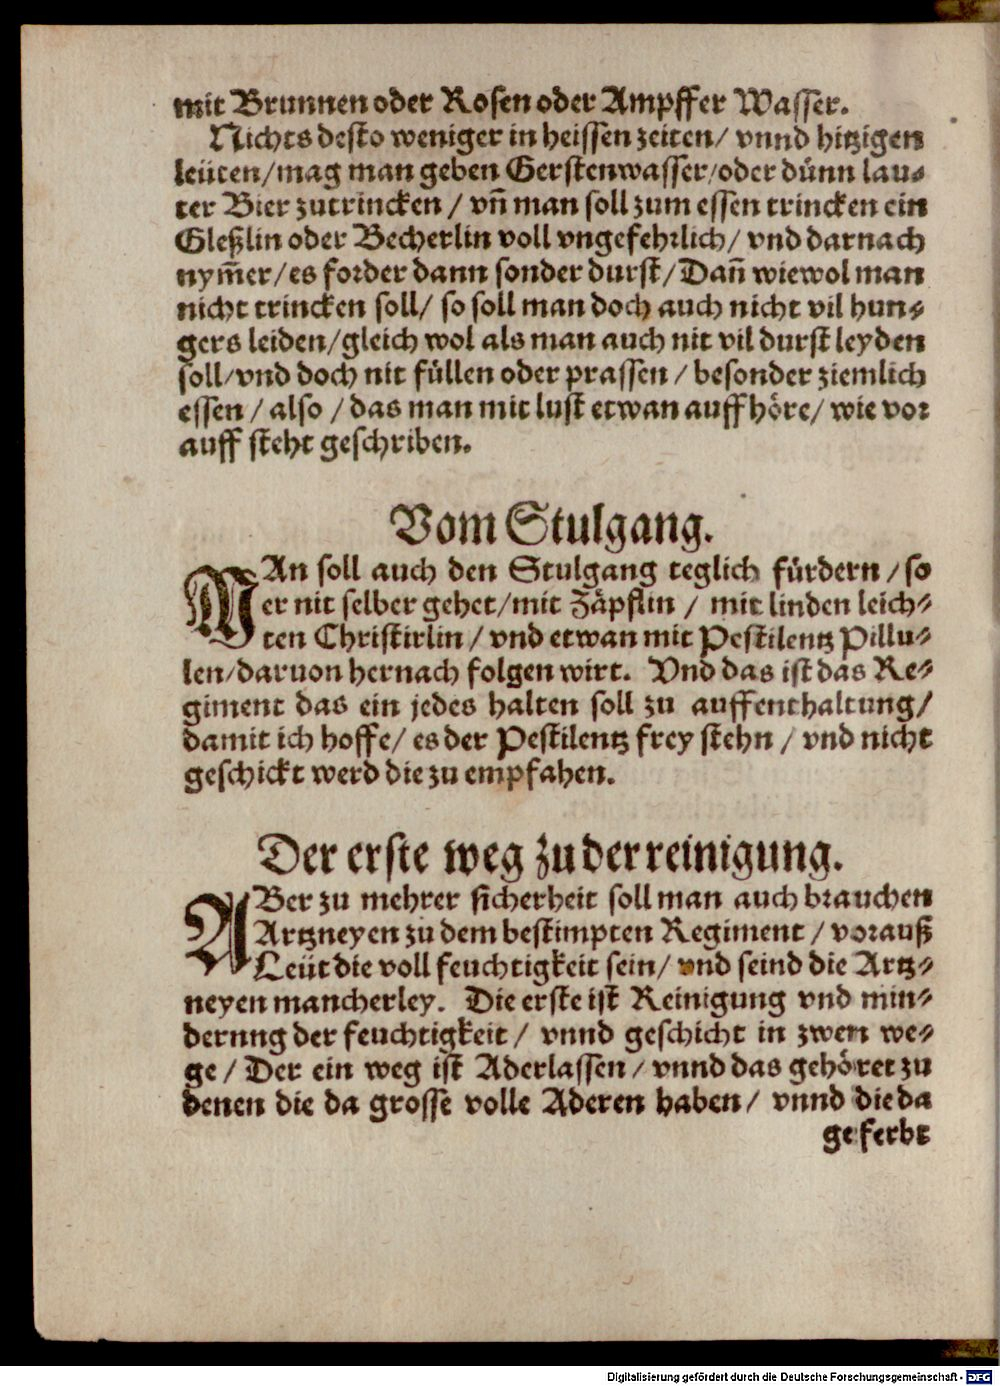 mit Brunnen oder Rosen oder Ampffer Wasser.
Nichts desto weniger in heissen zeiten/ vnnd hitzigen
leüten/mag man geben Gerstenwasser/oder dünn lau-
ter Bier zutrincken / vñ man soll zum essen trincken ein
Gleßlin oder Becherlin voll vngefehrlich/ vnd darnach
nym̃er/es forder dann sonder durst/Dañ wiewol man
nicht trincken soll/ so soll man doch auch nicht vil hun-
gers leiden/gleich wol als man auch nit vil durst leyden
soll/vnd doch nit füllen oder prassen / besonder ziemlich
essen / also / das man mit lust etwan auffhöre/ wie vor
auff steht geschriben.
Vom Stulgang.
MAn soll auch den Stulgang teglich fürdern / so
er nit selber gehet/mit Zäpflin / mit linden leich-
ten Christirlin / vnd etwan mit Pestilentz Pillu-
len/daruon hernach folgen wirt. Vnd das ist das Re-
giment das ein jedes halten soll zu auffenthaltung/
damit ich hoffe/ es der Pestilentz frey stehn / vnd nicht
geschickt werd die zu empfahen.
Der erste weg zu der reinigung.
ABer zu mehrer sicherheit soll man auch brauchen
Artzneyen zu dem bestimpten Regiment / vorauß
Leüt die voll feuchtigkeit sein/ vnd seind die Artz-
neyen mancherley. Die erste ist Reinigung vnd min-
dernng der feuchtigkeit / vnnd geschicht in zwen we-
ge / Der ein weg ist Aderlassen / vnnd das gehöret zu
denen die da grosse volle Aderen haben/ vnnd die da
geferbt
Digitalisierung gefördert durch die Deutsche Forschungsgemeinschaft - DFG